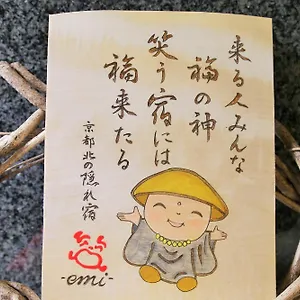 来る人みんな
福の神
笑う宿には
福来たる
京都北の隠れ宿
-emi-